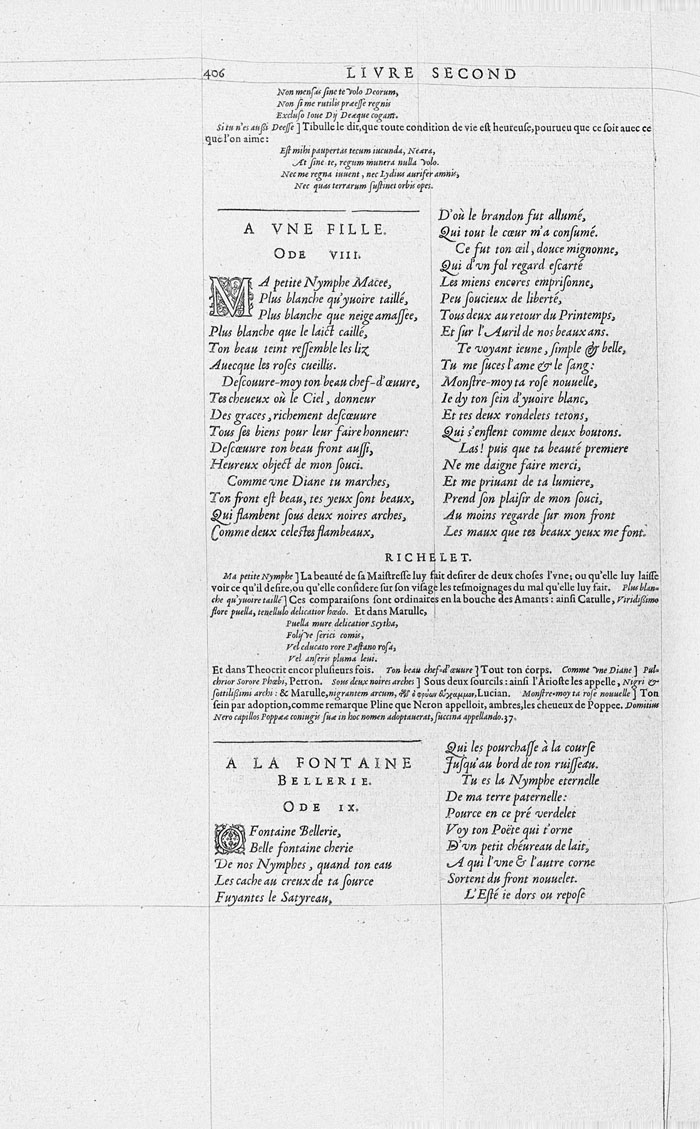 406 LIVRE SECOND
Non mensas sine te volo Deorum,
Non si me rutilis præesse regnis
Excluso Ioue Dij Deæque cogant.
Si tu n'es außi Deesse ] Tibulle le dit, que toute condition de vie est heureuse, pourueu que ce soit auec ce
que l'on aime:
Est mihi paupertas tecum iucunda, Neæra,
At sine te, regum munera nulla volo.
Nec me regna iuuent, nec Lydius aurifer amnis,
Nec quas terrarum sustinet orbis opes.
A VNE FILLE.
ODE VIII.
MA petite Nymphe Macee,
Plus blanche qu'yuoire taillé,
Plus blanche que neige amassee,
Plus blanche que le laict caillé,
Ton beau teint ressemble les liz
Auecque les roses cueillis.
Descouure-moy ton beau chef-d'œuure,
Tes cheueux où le Ciel, donneur
Des graces, richement descœuure
Tous ses biens pour leur faire honneur:
Descœuure ton beau front aussi,
Heureux obiect de mon souci.
Comme vne Diane tu marches,
Ton front est beau, tes yeux sont beaux,
Qui flambent sous deux noires arches,
Comme deux celestes flambeaux,
D'où le brandon fut allumé,
Qui tout le cœur m'a consumé.
Ce fut ton œil, douce mignonne,
Qui d'vn fol regard escarté
Les miens encores emprisonne,
Peu soucieux de liberté,
Tous deux au retour du Printemps,
Et sur l'Auril de nos beaux ans.
Te voyant ieune, simple & belle,
Tu me suces l'ame & le sang:
Monstre-moy ta rose nouuelle,
Ie dy ton sein d'yuoire blanc,
Et tes deux rondelets tetons,
Qui s'enflent comme deux boutons.
Las! puis que ta beauté premiere
Ne me daigne faire merci,
Et me priuant de ta lumiere,
Prend son plaisir de mon souci,
Au moins regarde sur mon front
Les maux que tes beaux yeux me font.
RICHELET.
Ma petite Nymphe ] La beauté de sa Maistresse luy fait desirer de deux choses l'vne; ou qu'elle luy laisse
voir ce qu'il desire, ou qu'elle considere sur son visage les tesmoignages du mal qu'elle luy fait. Plus blan-
che qu'yuoire taillé ] Ces comparaisons sont ordinaires en la bouche des Amants: ainsi Catulle, Viridissimo
flore puella, tenellulo delicatior hædo. Et dans Marulle,
Puella mure delicatior Scytha,
Folijve serici comis,
Vel educato rore Pæstano rosa,
Vel anseris pluma leui.
Et dans Theocrit encor plusieurs fois. Ton beau chef-d'œuure ] Tout ton corps. Comme vne Diane ] Pul-
chrior Sorore Phœbi, Petron. Sous deux noires arches ] Sous deux sourcils: ainsi l'Arioste les appelle, Nigri &
sottilißimi archi: & Marulle, nigrantem arcum, Lucian. Monstre-moy ta rose nouuelle ] Ton
sein par adoption, comme remarque Pline que Neron appelloit, ambres, les cheueux de Poppee. Domitius
Nero capillos Poppææ coniugis suæ in hoc nomen adoptauerat, succina appellando. 37.
A LA FONTAINE
BELLERIE.
ODE IX.
O Fontaine Bellerie,
Belle fontaine cherie
De nos Nymphes, quand ton eau
Les cache au creux de ta source
Fuyantes le Satyreau,
Qui les pourchasse à la course
Jusqu'au bord de ton ruisseau.
Tu es la Nymphe eternelle
De ma terre paternelle:
Pource en ce pré verdelet
Voy ton Poëte qui t'orne
D'vn petit chéureau de lait,
A qui l'vne & l'autre corne
Sortent du front nouuelet.
L'Esté ie dors ou repose